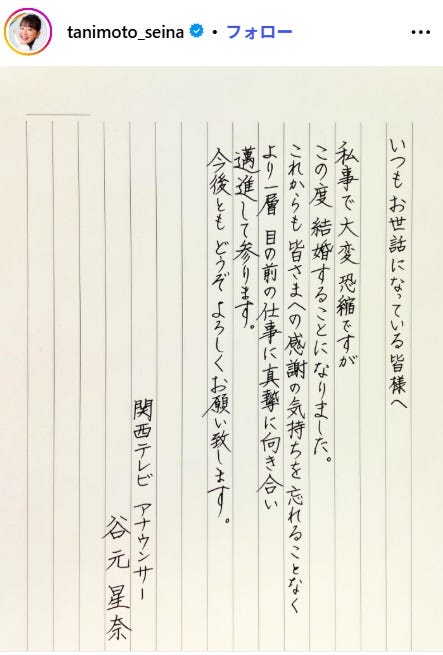 tanimoto_seina • フォロー
いつもお世話になっている皆様へ
私事で大変恐縮ですが
この度 結婚することになりました。
これからも皆さまへの感謝の気持ちを忘れることなく
より一層 目の前の仕事に真摯に向き合い
邁進して参ります。
今後とも どうぞ よろしくお願い致します。
関西テレビ アナウンサー
谷元 星奈